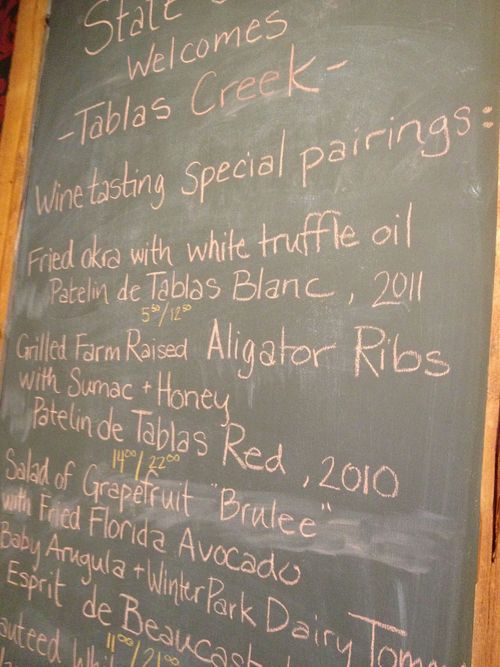 State
Welcomes
-Tablas Creek-
Wine tasting special pairings:
Fried okra with white truffle oil
Patelin de Tablas Blanc, 2011
5⁵⁰/12⁵⁰
Grilled Farm Raised Aligator Ribs
with Sumac + Honey
Patelin de Tablas Red, 2010
14⁰⁰/22⁰⁰
Salad of Grapefruit "Brulee"
with Fried Florida Avocado
Baby Arugula + Winter Park Dairy Tomm
Esprit de Beaucast
11⁰⁰/21⁰⁰
auteed Whi